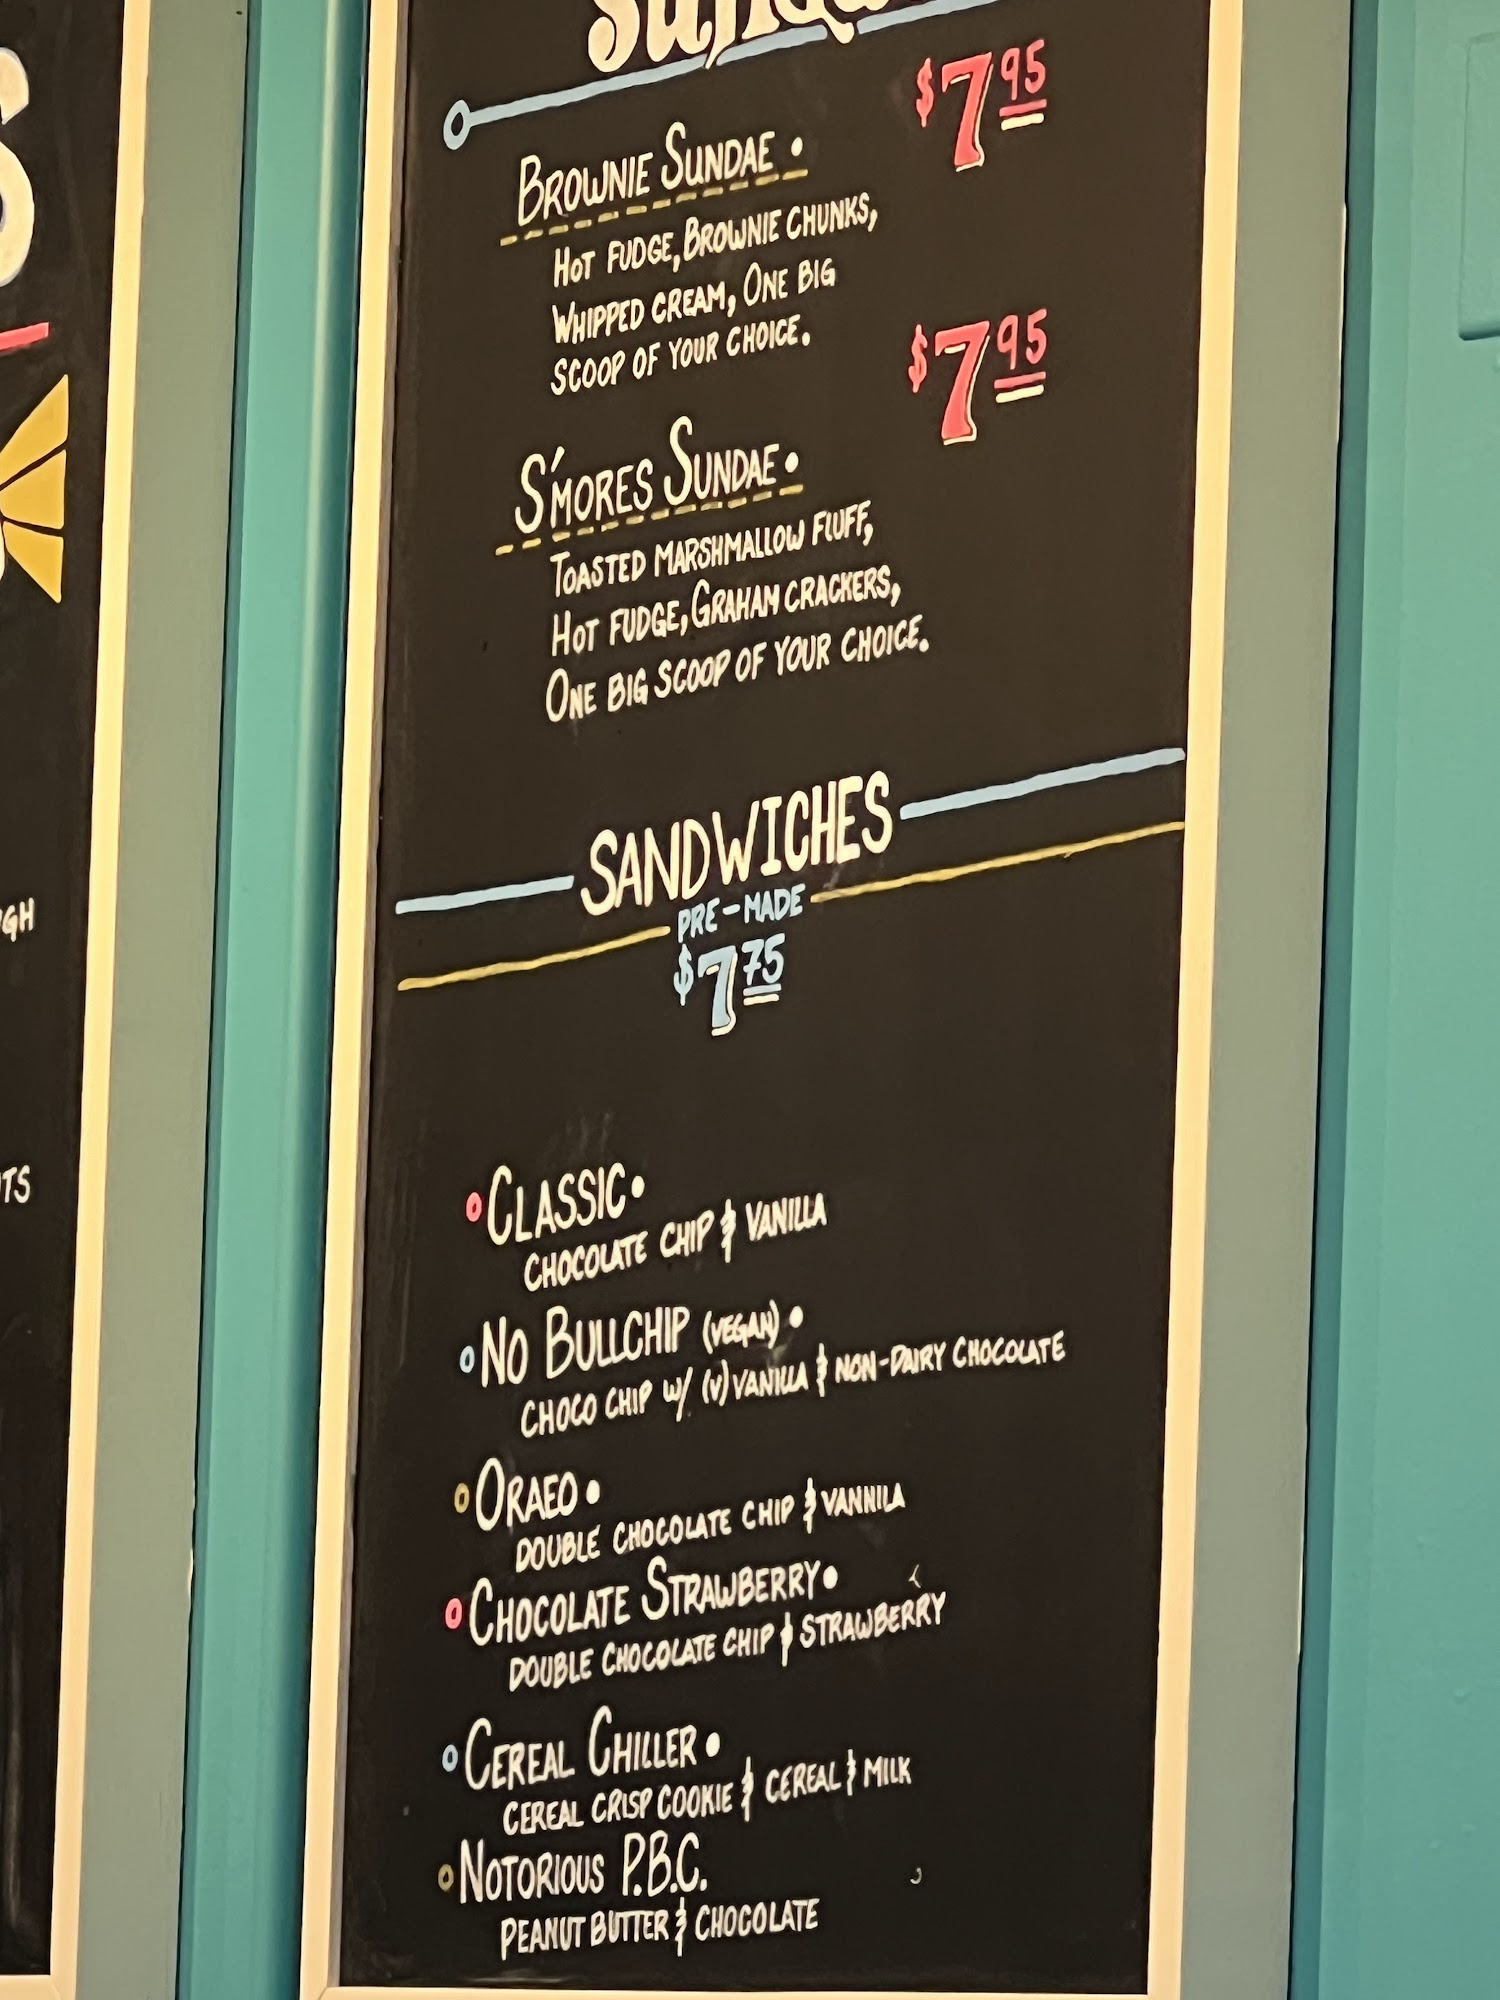 $7.95
BROWNIE SUNDAE •
HOT FUDGE, BROWNIE CHUNKS,
WHIPPED CREAM, ONE BIG
SCOOP OF YOUR CHOICE.
$7.95
S'MORES SUNDAE •
TOASTED MARSHMALLOW FLUFF,
HOT FUDGE, GRAHAM CRACKERS,
ONE BIG SCOOP OF YOUR CHOICE.
SANDWICHES
PRE-MADE
$7.75
CLASSIC •
CHOCOLATE CHIP & VANILLA
NO BULLCHIP (VEGAN) •
CHOCO CHIP W/ (V) VANILLA & NON-DAIRY CHOCOLATE
ORAEO •
DOUBLE CHOCOLATE CHIP & VANNILA
CHOCOLATE STRAWBERRY •
DOUBLE CHOCOLATE CHIP & STRAWBERRY
CEREAL CHILLER •
CEREAL CRISP COOKIE & CEREAL & MILK
NOTORIOUS P.B.C.
PEANUT BUTTER & CHOCOLATE